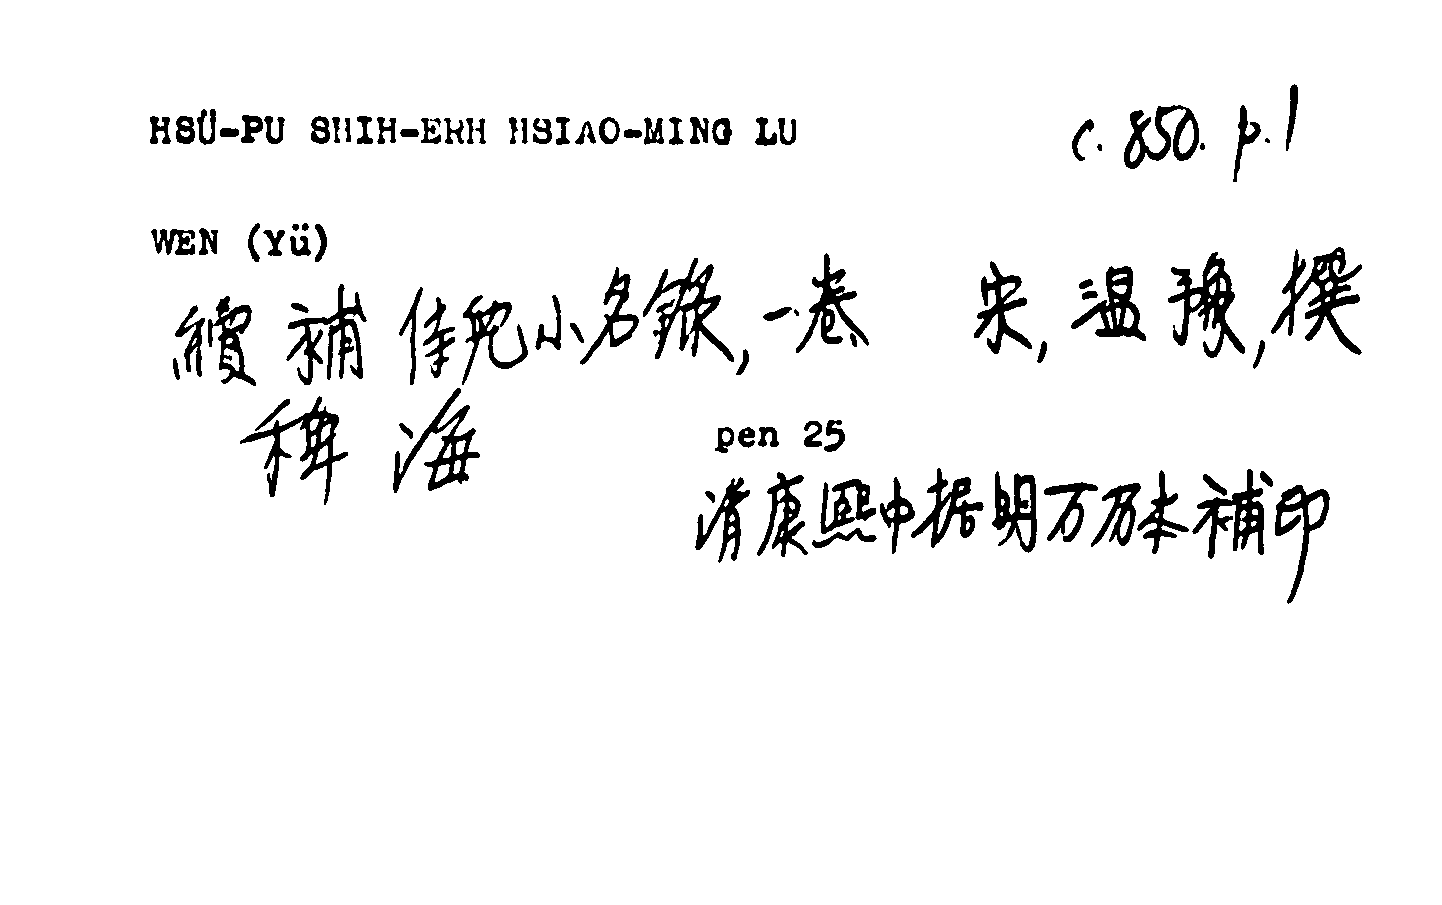 HSÜ-PU SHIH-ERH HSIAO-MING LU c. 850. p. 1
WEN (Yü)
續補侍兒小名錄,一卷 宋,温豫,撰
稗海 pen 25
清康熙中据明万历本補印